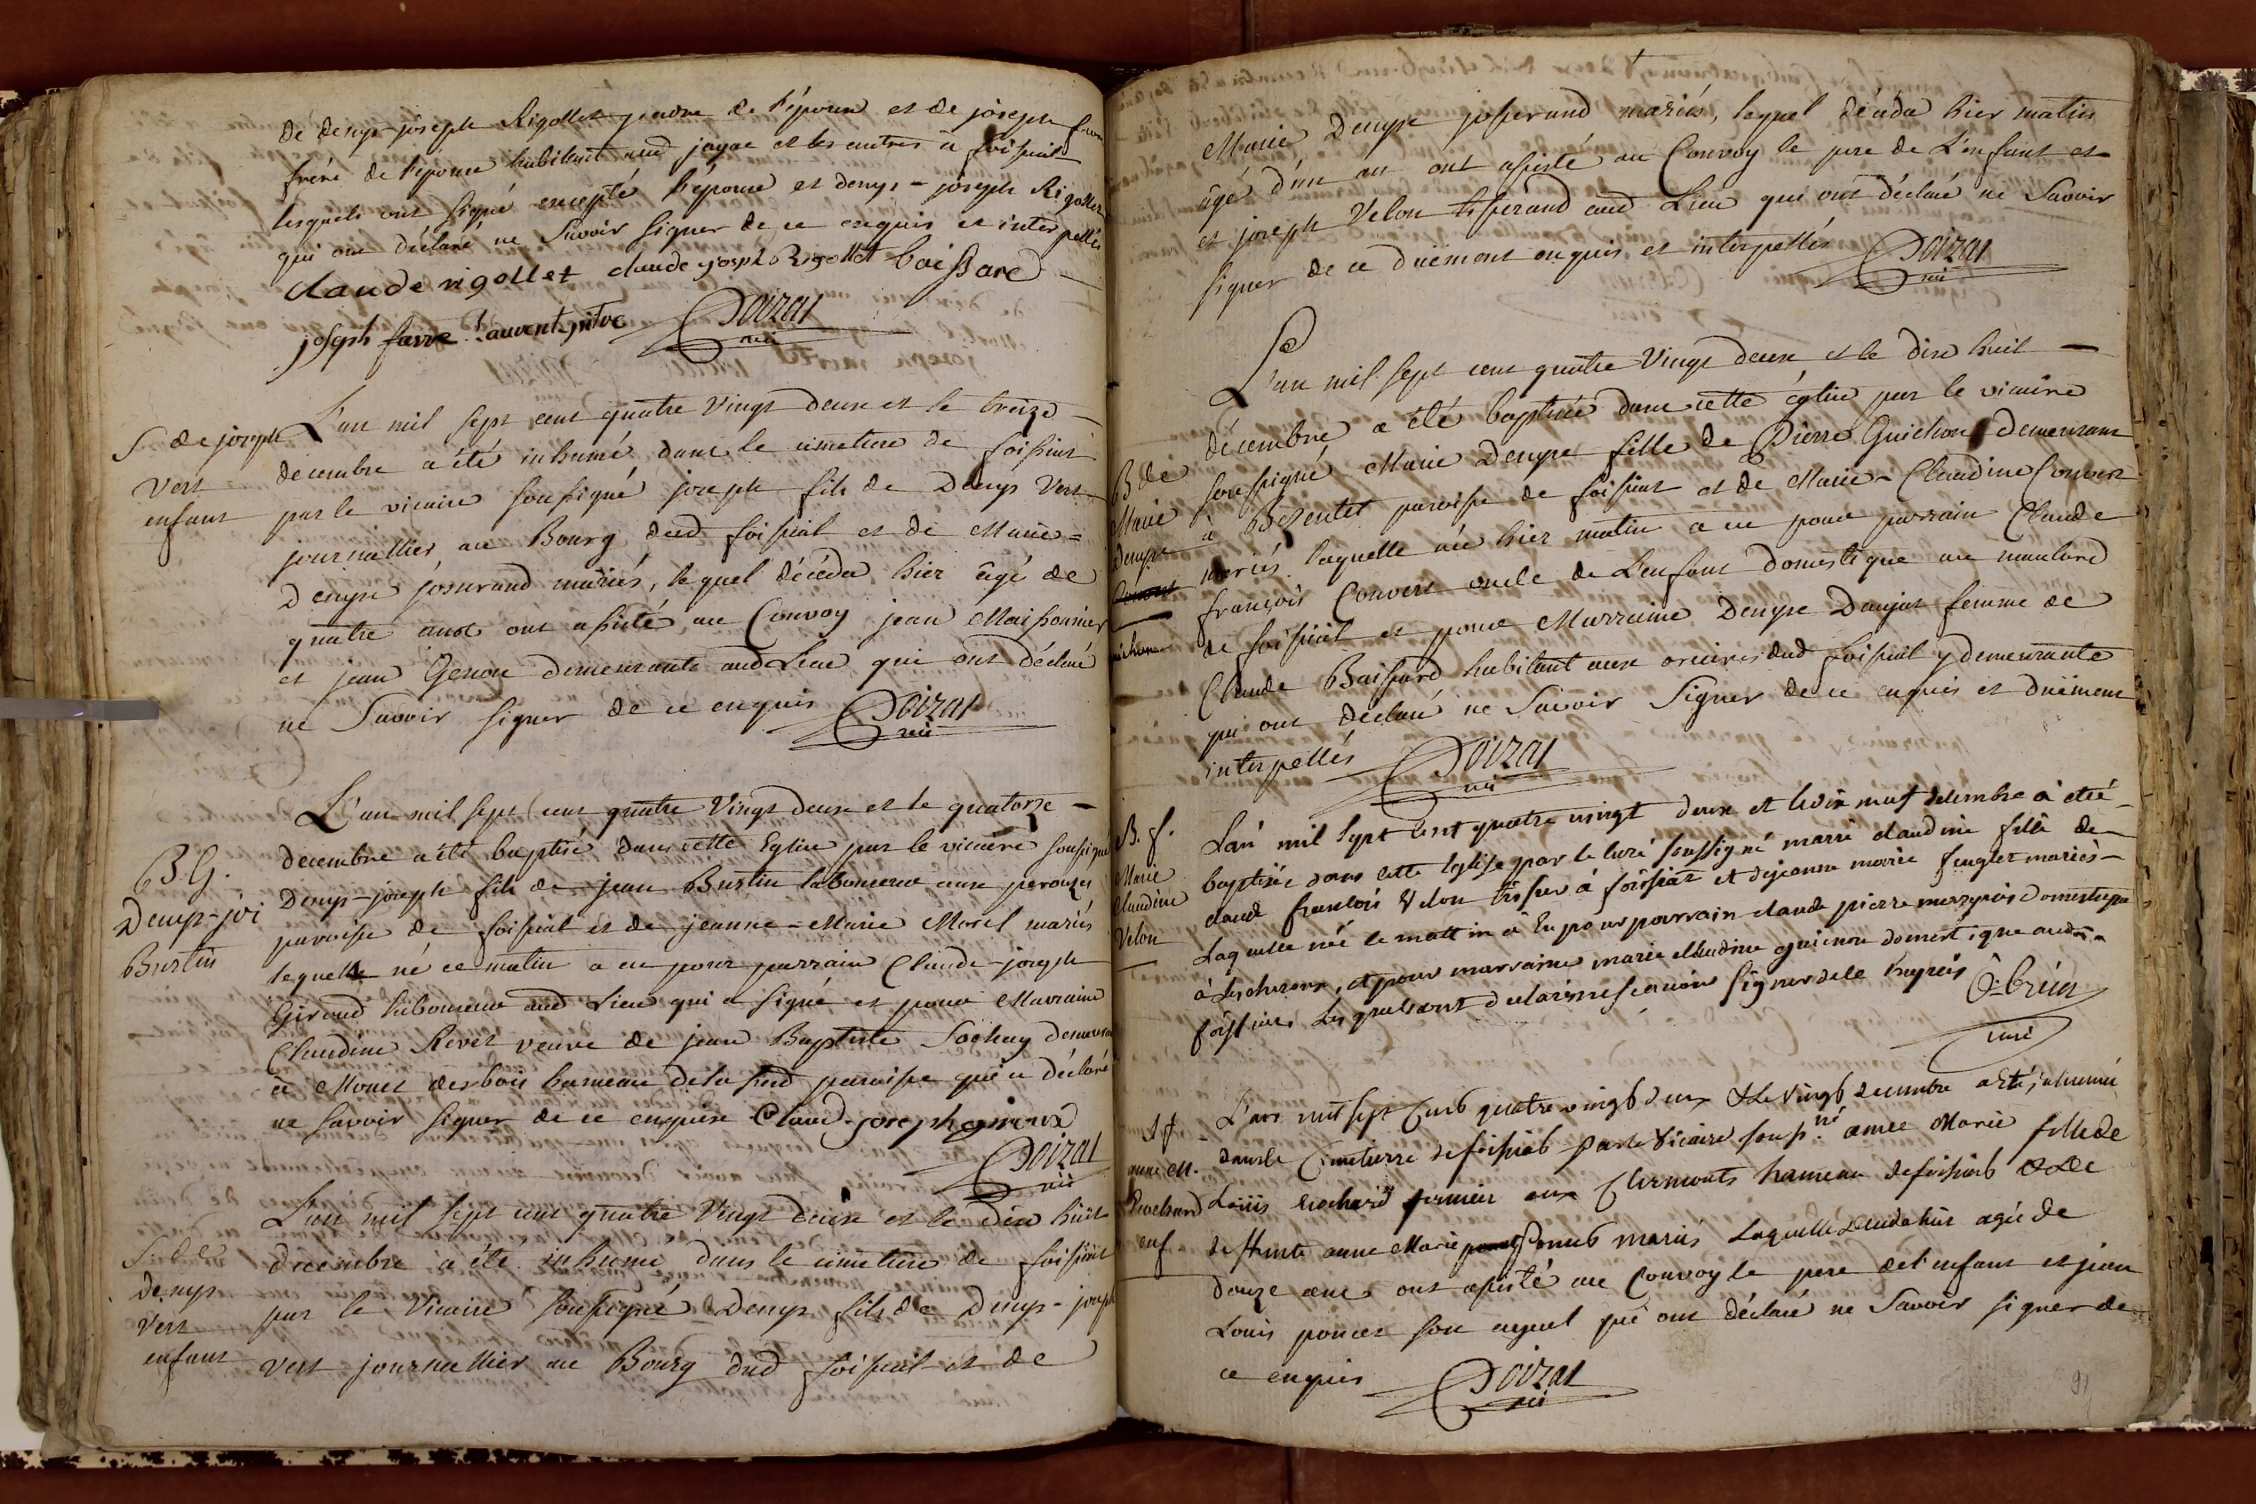 de denys-joseph Rigollet gendre de l'épouse et de joseph favre
frère de l'épouse habitant aud jayac et les autres à foissiat
lesquels ont signé excepté l'épouse et denys-joseph Rigollet
qui ont déclaré ne Savoir signer de ce enquis et interpellés
claude rigollet claude joseph Rigollet boissard
joseph favre Laurent ptre Doizat
vic
S de joseph
vert
enfant
L'an mil sept cent quatre Vingt deux et le treize
decembre a été inhumé dans le cimetiere de foissiat
par le vicaire soussigné joseph fils de Denys Vert
journallier au Bourg dud foissiat et de Marie=
Denyse josserand mariés, lequel décéda hier âgé de
quatre ans ont assisté au Convoy jean Maissonnier
et jean Genou demeurants aud Lieu qui ont déclaré
ne Savoir signer de ce enquis Doizat
vic
B G.
Denys-jos
Bustin
L'an mil sept cent quatre Vingt deux et le quatorze
decembre a été baptisé dans cette Eglise par le vicaire soussigné
Denys-joseph fils de jean Bustin laboureur aux perouses
paroisse de foissiat et de jeanne-Marie Morel mariés
lequel né ce matin a eu pour parrain Claude-joseph
Giroud laboureur aud Lieu qui a signé et pour Marraine
Claudine Revel veuve de jean Baptiste Sochay demeurant
à Monet des bois hameau de la sud paroisse qui a déclaré
ne savoir signer de ce enquise Claud joseph giroux
Doizat
vic
S de
Denys
Vert
enfant
L'an mil sept cent quatre Vingt deux et le dix huit
decembre a été inhumé dans le cimetiere de foissiat
par le Vicaire soussigné Denys fils de Denys-joseph
Vert journallier au Bourg dud foissiat et de
Marie Denyse josserand mariés, lequel décéda hier matin
âgé d'un an ont assisté au Convoy le pere de L'enfant et
et joseph Velon tisserand aud Lieu qui ont déclaré ne Savoir
signer de ce duëment enquis et interpellés Doizat
vic
B de
Marie
Denyse
L'an mil sept cent quatre Vingt deux et le dix huit
décembre a été baptisée dans cette église par le vicaire
soussigné Marie Denyse fille de Pierre Guichon demeurant
à Bezentet paroisse de foissiat et de Marie-Claudine Convert
mariés laquelle née hier matin a eu pour parrain Claude
françois Convert oncle de L'enfant domestique au
de foissiat et pour Marraine Denyse Danjat femme de
Claude Baissard habitant aux dud foissiat y demeurante
qui ont déclaré ne Savoir Signer de ce enquis et duëment
interpellés Doizat
vic
B. f.
Marie
Claudine
Velon
Lan mil sept cent quatre vingt deux et le dix neuf decembre a été
baptisée dans cette Eglise par le curé soussigné marie claudine fille de
claude francois Velon tissier à foissiat et de jeanne marie mariés
Laquelle née le mattin à Eu pour parrain claude pierre domestique
à Lescheroux, et pour marraine marie claudine guichon domestique aud
foissiat Lesquels ont declarés ne scavoir signer de ce Enquis
curé
S f.
anne M.
Brochard
enf
L'an mil sept Cent quatre vingt deux & le vingt decembre a Eté inhumée
dans le Cimetierre de foissiat par le Vicaire souss.né anne Marie fille de
Louis Brochard fermier aux Clermonts hameau de foissiat & de
deffunte anne Marie poncet mariés Laquelle deceda hier agée de
douze ans ont assisté au Convoy le pere de l'enfant et jean
Louis poncet son ayeul qui ont déclaré ne Savoir signer de
ce enquis Doizat
vic
91